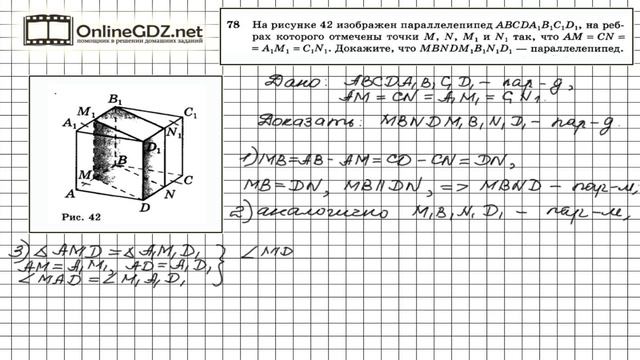 OnlineGDZ.net
помощник в решении домашних заданий
78 На рисунке 42 изображен параллелепипед ABCDA₁B₁C₁D₁, на реб-
рах которого отмечены точки M, N, M₁ и N₁ так, что AM = CN =
= A₁M₁ = C₁N₁. Докажите, что MBNDM₁B₁N₁D₁ — параллелепипед.
Дано: ABCDA₁B₁C₁D₁ - пар-д,
AM = CN = A₁M₁ = C₁N₁.
Доказать: MBNDM₁B₁N₁D₁ - пар-д.
B₁
M₁
C₁
A₁
N₁
D₁
B
M
C
A
N
D
Рис. 42
1) MB = AB - AM = CD - CN = DN,
MB = DN, MB || DN, => MBND - пар-м,
2) аналогично M₁B₁N₁D₁ - пар-м,
3) ∆ AMD = ∆ A₁M₁D₁
AM = A₁M₁, AD = A₁D₁
∠MAD = ∠M₁A₁D₁
∠MD